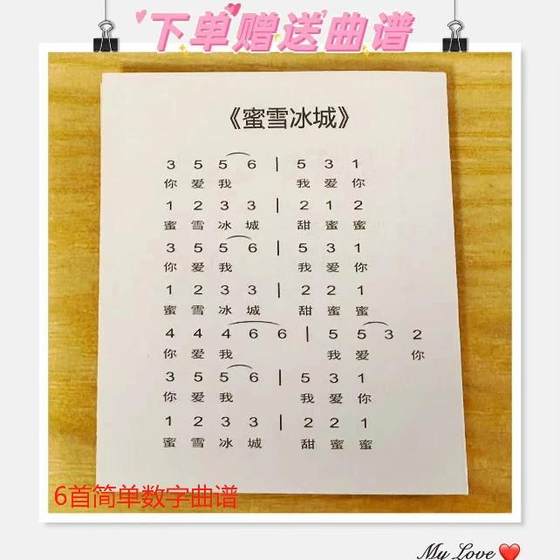 下单赠送曲谱
《蜜雪冰城》
3 5 5 6 | 5 3 1
你 爱 我 我 爱 你
1 2 3 3 | 2 1 2
蜜 雪 冰 城 甜 蜜 蜜
3 5 5 6 | 5 3 1
你 爱 我 我 爱 你
1 2 3 3 | 2 2 1
蜜 雪 冰 城 甜 蜜 蜜
4 4 4 6 6 | 5 5 3 2
你 爱 我 我 爱 你
3 5 5 6 | 5 3 1
你 爱 我 我 爱 你
1 2 3 3 | 2 2 1
蜜 雪 冰 城 甜 蜜 蜜
6首简单数字曲谱
My Love